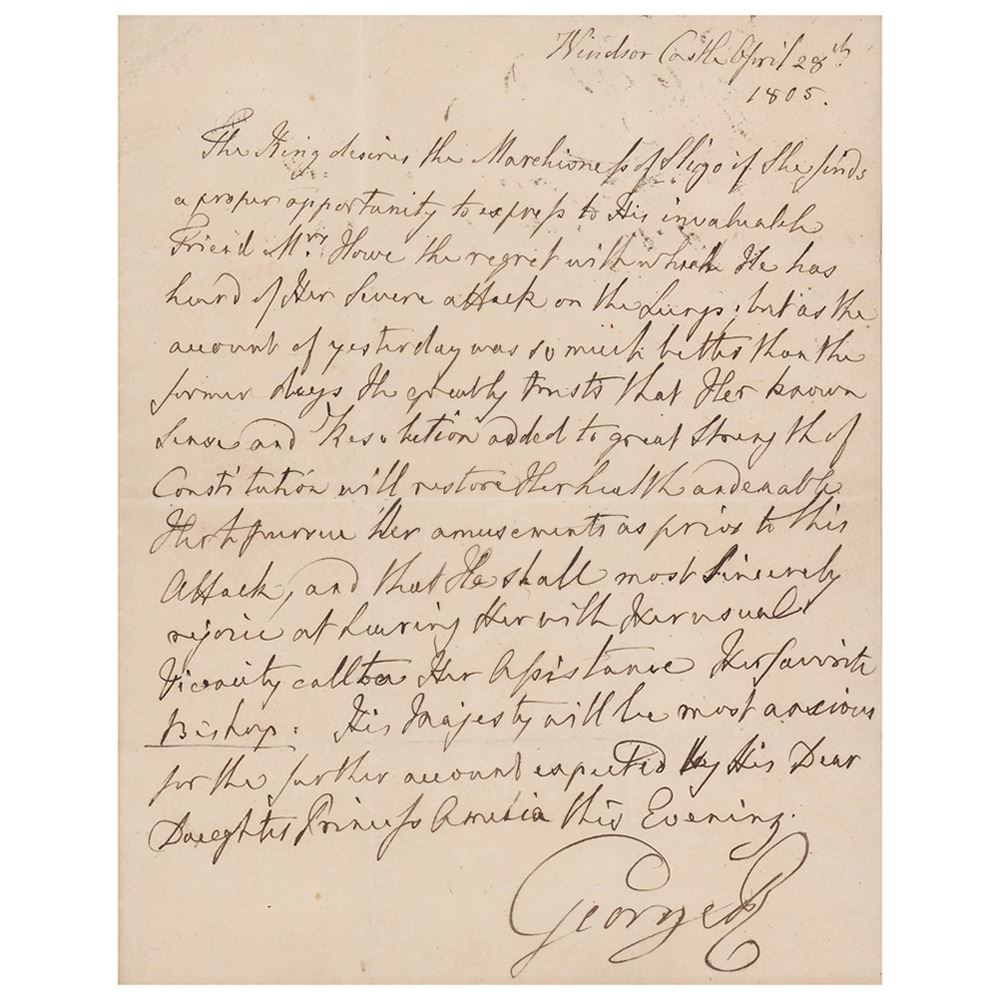 Windsor Castle April 28th
1805.
The King desires the Marchioness of Sligo if She finds
a proper opportunity to express to His invaluable
Friend Mrs. Howe the regret with which He has
heard of Her Severe attack on the Lungs; but as the
account of yesterday was so much better than the
former days He greatly trusts that Her known
Sense and Resolution added to great Strength of
Constitution will restore Her health and enable
Her to pursue Her amusements as prior to this
Attack, and that He shall most Sincerely
rejoice at hearing Her with Her usual
Vivacity call to Her Assistance Her favorite
Bishop. His Majesty will be most anxious
for the further account expected by His Dear
Daughter Princess Amelia this Evening.
George R